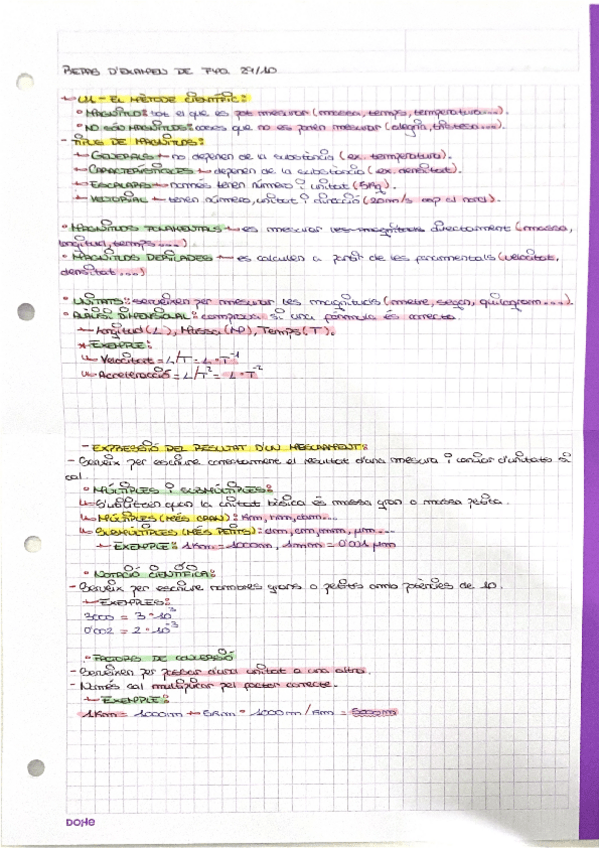 REPÀS D'EXAMEN DE FYQ 24/10
U1 - EL MÈTODE CIENTÍFIC:
• MAGNITUD: tot el que es pot mesurar (massa, temps, temperatura...).
• NO SÓN MAGNITUDS: coses que no es poden mesurar (alegria, tristesa...).
- TIPUS DE MAGNITUDS:
GENERALS no depenen de la substància (ex. temperatura).
CARACTERÍSTIQUES depenen de la substància (ex. densitat).
ESCALARS només tenen número i unitat (5Kg).
VECTORIAL tenen número, unitat i direcció (20m/s cap al nord).
• MAGNITUDS FONAMENTALS es mesuran directament (massa,
longitud, temps...).
• MAGNITUDS DERIVADES es calculen a partir de les fonamentals (velocitat,
densitat...)
• UNITATS: serveixen per mesurar les magnituds (metre, segon, quilogram...).
• ANÀLISI DIMENSIONAL: comprova si una fórmula és correcta.
Longitud (L), Massa (M), Temps (T).
* EXEMPLE:
Velocitat = L/T = L · T⁻¹
Acceleració = L/T² = L · T⁻²
- EXPRESSIÓ DEL RESULTAT D'UN MESURAMENT:
- Serveix per escriure correctament el resultat d'una mesura i canviar d'unitats si
cal.
• MÚLTIPLES I SUBMÚLTIPLES:
S'utilitzen quan la unitat bàsica és massa gran o massa petita.
MÚLTIPLES (MÉS GRAN): Km, hm, dam...
SUBMÚLTIPLES (MÉS PETITS): dm, cm, mm, µm...
EXEMPLE: 1Km = 1000m, 1mm = 0'001 µm
• NOTACIÓ CIENTÍFICA:
- Serveix per escriure nombres grans o petits amb potències de 10.
EXEMPLES:
3000 = 3 · 10³
0'002 = 2 · 10⁻³
• FACTORS DE CONVERSIÓ
- Serveixen per passar d'una unitat a una altra.
- Només cal multiplicar pel factor correcte.
EXEMPLE:
1Km = 1000m 5Km · 1000m / Km = 5000m
DOHE